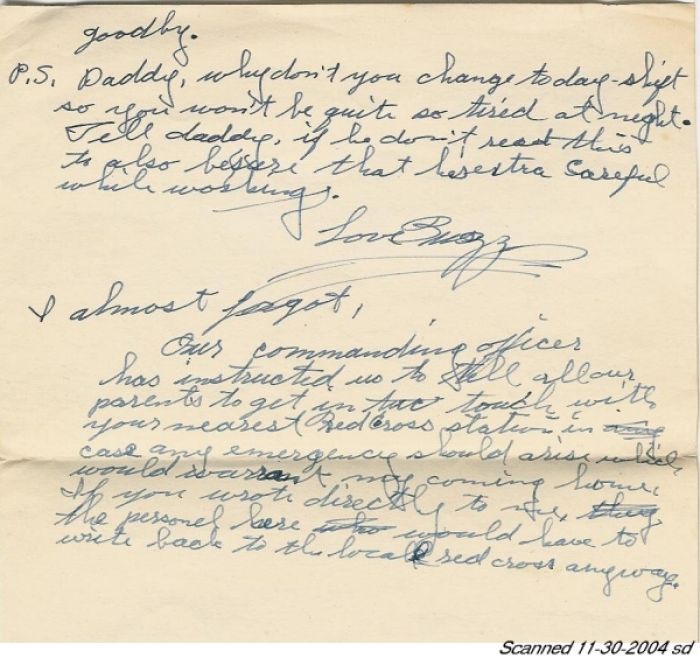 goodby.
P.S. Daddy, why don't you change to day-shift
so you won't be quite so tired at night.
Tell daddy, if he don't read this
to also be sure that he's extra careful
while working.
Love Buzz
I almost forgot,
Our commanding officer
has instructed us to tell all our
parents to get in touch with
your nearest Red Cross station in
case any emergency should arise which
would warrant my coming home.
If you wrote directly to me, they
the personel here who would have to
write back to the local red cross anyway.
Scanned 11-30-2004 sd